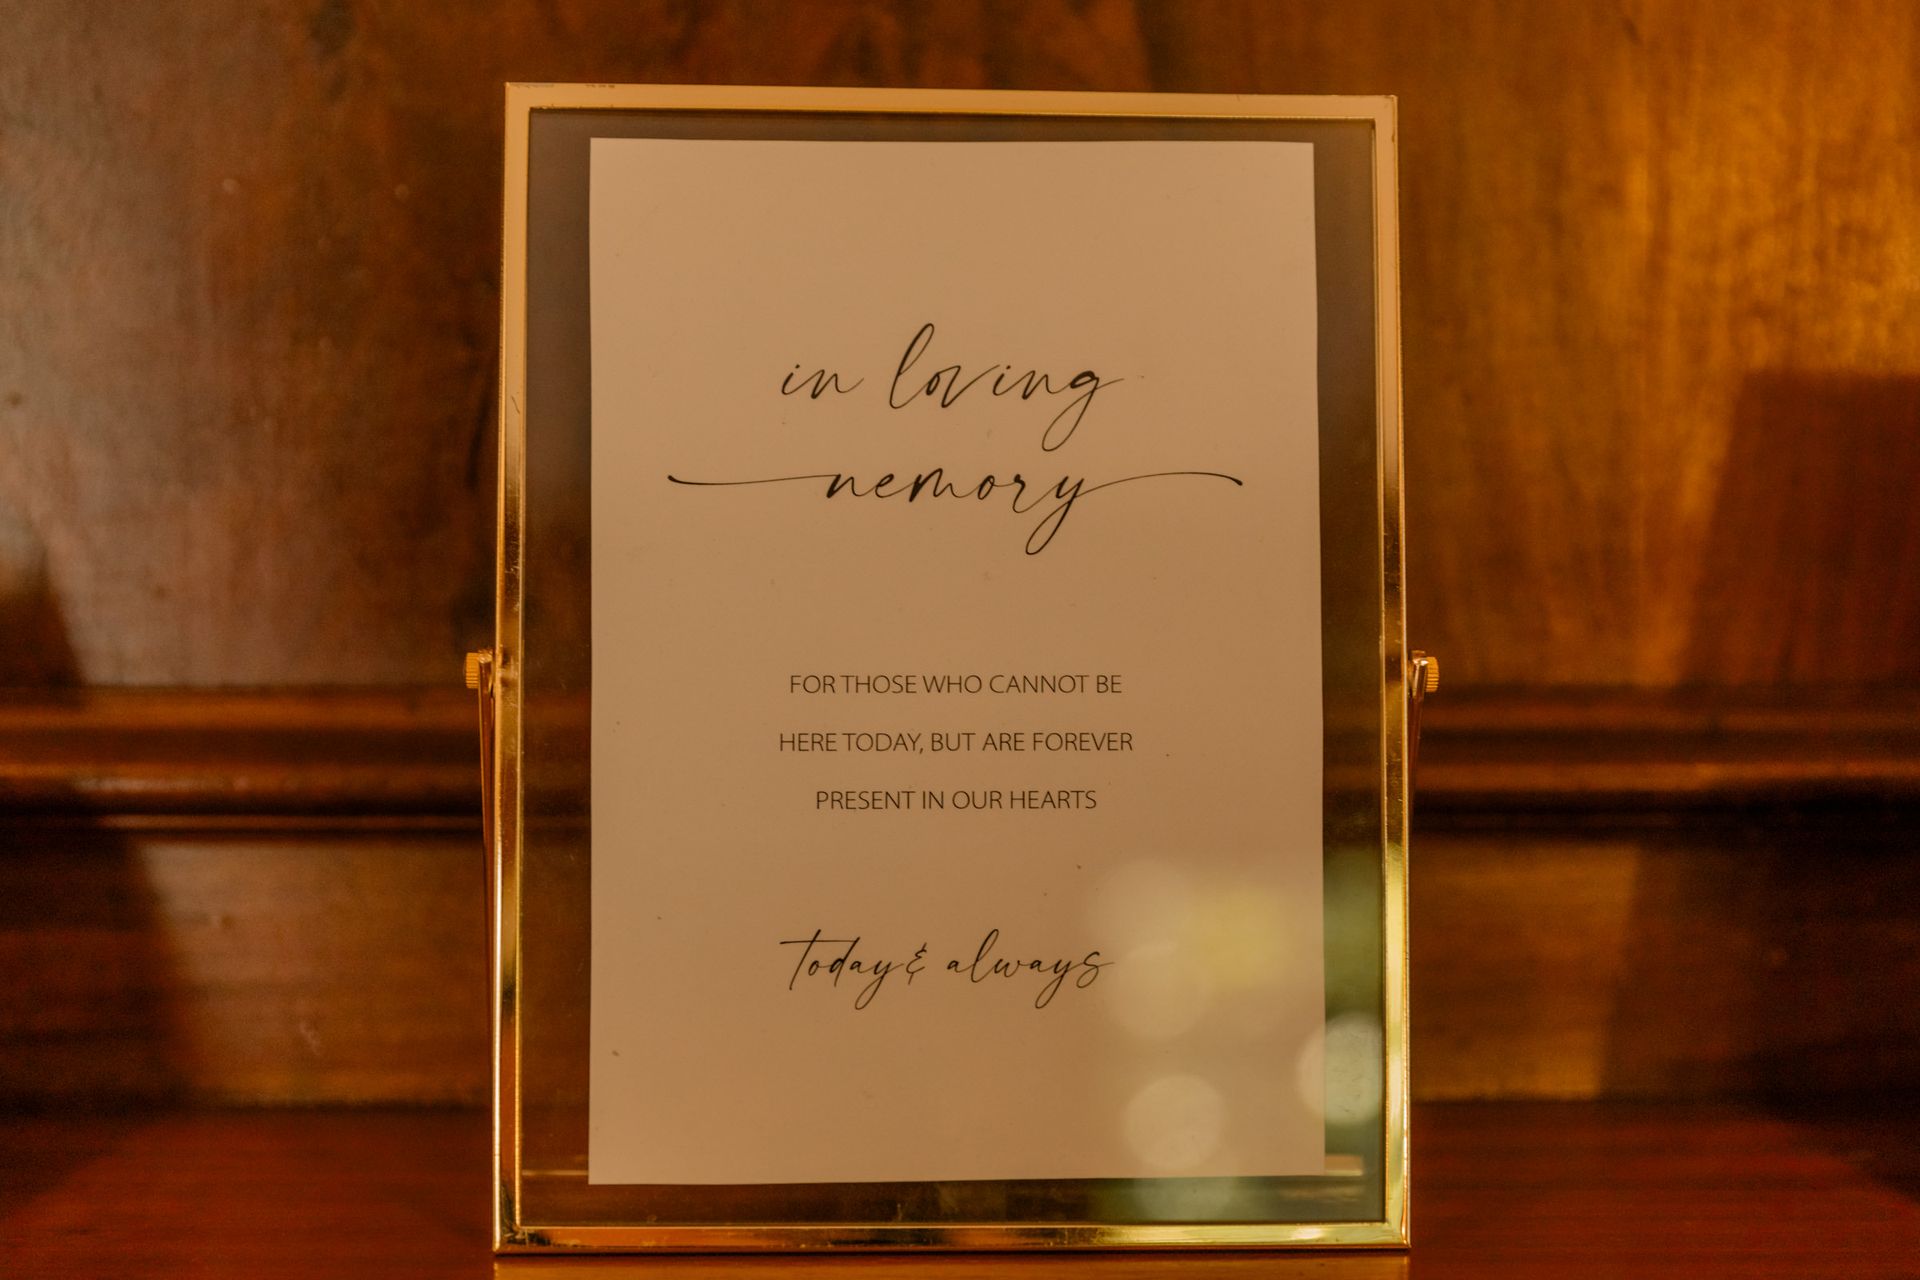 in loving
memory
FOR THOSE WHO CANNOT BE
HERE TODAY, BUT ARE FOREVER
PRESENT IN OUR HEARTS
Today & always